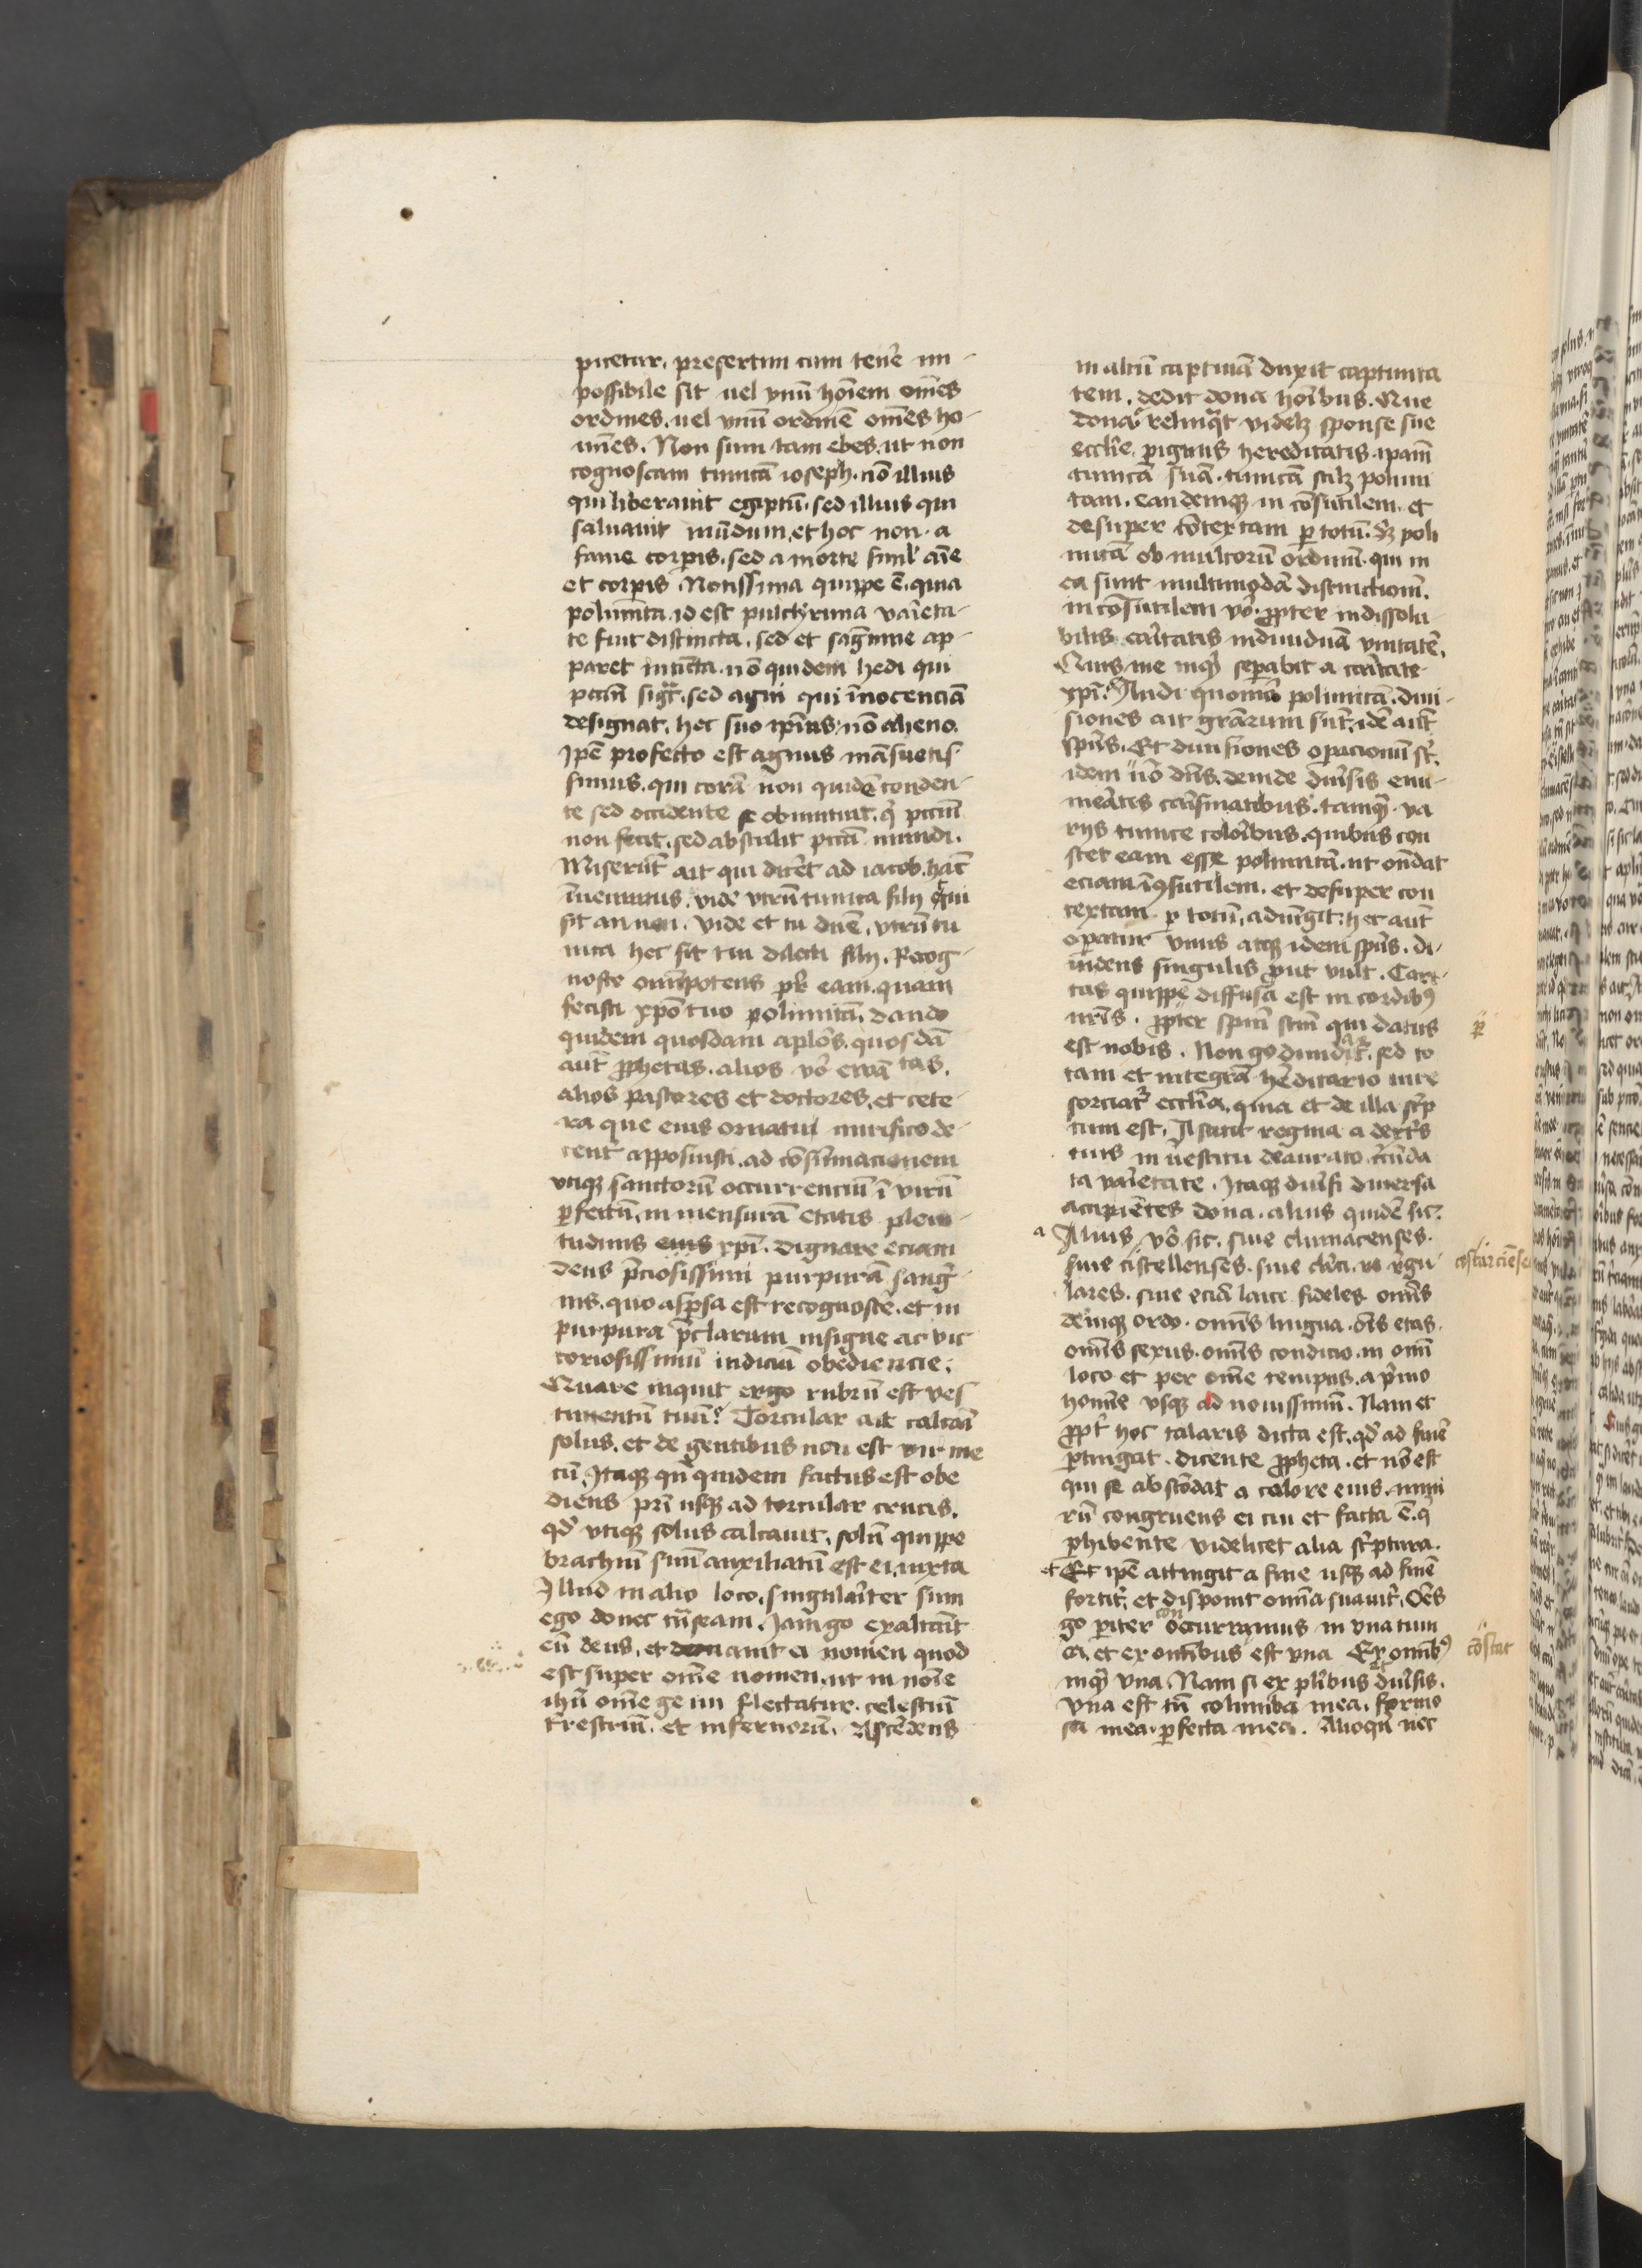 picetur, presertim cum tenē im-
possibile sit uel vnū hoīem om̄es
ordines, uel vnū ordinē om̄es ho-
mīes. Non sum tam ebes, ut non
cognoscam tunicā ioseph. nō illius
qui liberauit egiptū. sed illius qui
saluauit mūdum, et hoc non a
fame corpis. sed a morte siml' aīe
et corpis Notissima quippe ē. quia
polimīta id est pulcherima varieta-
te fuit distincta. sed et sāguine ap-
paret intīcta. nō quidem hedi qui
pccm̄ sigt. sed agni qui īnocenciā
designat. hec suo ipīus, nō alieno.
Ipē profecto est agnus māsuetis-
simus, qui corā non quidē tonden-
te sed occidente se obmutuit. q̄ pccm̄
non fecit. sed abstulit pccā mundi.
Miserūt ait qui dicēt ad iacob. hāc
īuenimus. vide vtrū tunica filij tui
sit an non. vide et tu dn̄e, vtrū tu
nica hec sit tui dilecti filij. Recog-
nosce omīpotens pr̄ eam. quam
fecisti xp̄o tuo polimitā, dando
quidem quosdam aplōs. quosdā
aut̄ p̄phetas. alios vō ewāgtas,
alios pastores et doctores, et cete-
ra que eius ornatui mirifico de-
center apposuisti. ad cōsūmacionem
vtiq; sanctorū occurrenciū ī virū
p̄fectū, in mensurā etatis pleni-
tudinis eius xpī. Dignare eciam
deus p̄ciosissimi purpurā sangⁱ-
nis. quo aspsa est recognoscē. et in
purpura p̄clarum insigne ac vic
toriosissimū indiciū obediencie.
Quare inquit ergo rubrū est ves
timentū tuū? Torcular ait calcaui
solus. et de gentibus non est vir me
cū. Itaq; qn̄ quidem factus est obe
diens prī usq; ad torcular crucis,
qd' vtiq; solus calcauit, solū quippe
brachiū suū auxiliatū est ei, iuxta
Illud in alio loco, singulariter sum
ego donec trāseam. Iam go exaltauit
eū deus, et donauit ei nomen quod
est super om̄e nomen. ut in noīe
ihū om̄e genu flectatur. celestiū
trestriū. et infernorū. Ascēdens
in altū captiuā duxit captiuita
tem, dedit dona hoībus. Que
dona? relinqⁱt videlz sponse sue
ecclīe. pignus hereditatis. ipam
tunicā suā. tunicā scilz polimi
tam. eandemq; in cōsutilem. et
desuper cōtextam p totū. sz poli
mitā ob multorū ordinū. qui in
ea sunt multimodā distinctionē.
in cōsutilem vō. ppter indissolu-
bilis caritatis indiuiduā vnitatē.
Quis me inqⁱt sepabit a caritate
xpī? Audi quomō polimitā. diui
siones ait grārum sūt, idē aut̄
sps̄. Et diuisiones opacionū st̄.
idem vō dn̄s. deinde diuersis enu-
meātis carismatibus. tamq̄ va
rijs tunice coloribus. quibus con
stet eam esse polimitā. ut on̄dat
eciam īcōsutilem. et desuper con
textam p totū. adiūgit. hec aut̄
opatur vnus atq; idem sps̄. di-
uidens singulis put vult. Cari-
tas quippe diffusa est in cordib;
nr̄is. ppter spm̄ scm̄ qui datus
est nobis. Non go diuidat̄. sed to
tam et integrā heditario iure
sorciat' eccl̄ia, quia et de illa scⁱp
tum est. Astitit regina a dextⁱs
tuis in uestitu deaurato. circūda
ta varietate. Itaq; diuersi diuersa
accipiētes dona. alius quidē sic.
Alius vō sic. siue cluniacenses.
siue cistellenses. siue clerici regu-
lares. siue eciā laici fideles omīs
deniq; ordo. omīs lingua. oīs etas.
omīs sexus. omīs condicio. in omi
loco et per om̄e tempus. a pⁱmo
homīe vsq; ad nouissimū. Nam et
ppt' hoc talaris dicta est. qd' ad finē
ptingat. dicente ppheta. et nō est
qui se abscōdat a calore eius. nimi
rū congruens ei cui et facta ē. q̄
phibente videlicet alia scⁱptura.
Et ipē attingit a fine usq; ad finē
fortit', et disponit omīa suauit'. Oēs
go pariter concurramus in vna tuni
ca. et ex omībus est vna Ex omīb;
inq̄ vna. Nam si ex pluribus diuersis.
vna est tn̄ columba mea. formo
sa mea. pfecta mea. Alioqn̄ nec
a
cōstat
et